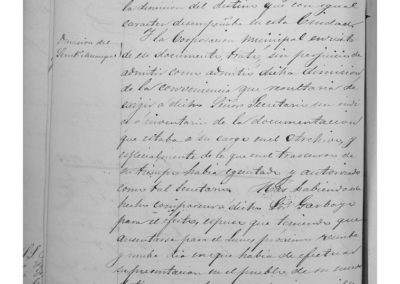 la dimision del destino que con igual
caracter desempeñaba en esta Ciudad.
Dimision del
Srio Municipal
Y la Corporacion Municipal en vista
de ese documento, trató, sin perjuicio de
admitir como admitió dicha dimision,
de la conveniencia que resultaria de
exijir a dicho Señor Secretario un indi
ce ó inventario de la documentacion
que estaba a su cargo en el Archivo, y
especialmente de lo que en el trascurso de
su tiempo habia ejecutado y autorizado
como tal Secretario. habiendo de
hecho comparecer a dicho Sor. Garbayo
para el efecto, espuso que teniendo que
ausentarse para el Lunes proximo
y nueve dia en que habia de efectuar
su presentacion en el pueblo de su nuevo